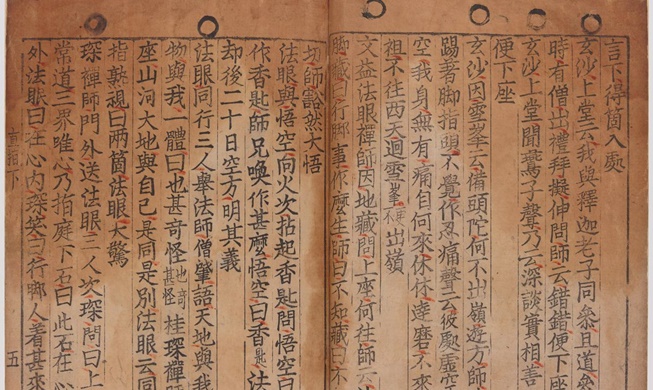 言下得箇入處
玄沙上堂云我與釋迦老子同叅且道叅
時有僧出禮拜擬伸問師云錯錯便下座
玄沙上堂聞鷰子聲乃云深談實相善
便下座
玄沙因雪峯云備頭陀何不出嶺遊方師
踢著脚指頭不覺作忍痛聲云彼虛空
空我身無有痛自何來休休達磨不來
祖不往西天迴雪峯更不出嶺
文益法眼禪師因地藏問上座何往師云
藏曰行脚事作麽生師曰不知藏曰不
切師豁然大悟
法眼與悟空向火次拈起香匙問悟空曰
作香匙師兄喚作甚麽悟空曰香匙法
却後二十日空方明其義
法眼同行三人舉法師僧肇語天地與我
物與我一體曰也甚奇怪也奇甚怪桂琛禪
座山河大地與自己是同是別法眼云同
指熟視曰兩箇法眼大驚
琛禪師門外送法眼三人次琛問曰上
常道三界唯心乃指庭下石曰此石在心
外法眼曰在心內琛笑曰行脚人著甚來
直指下 五